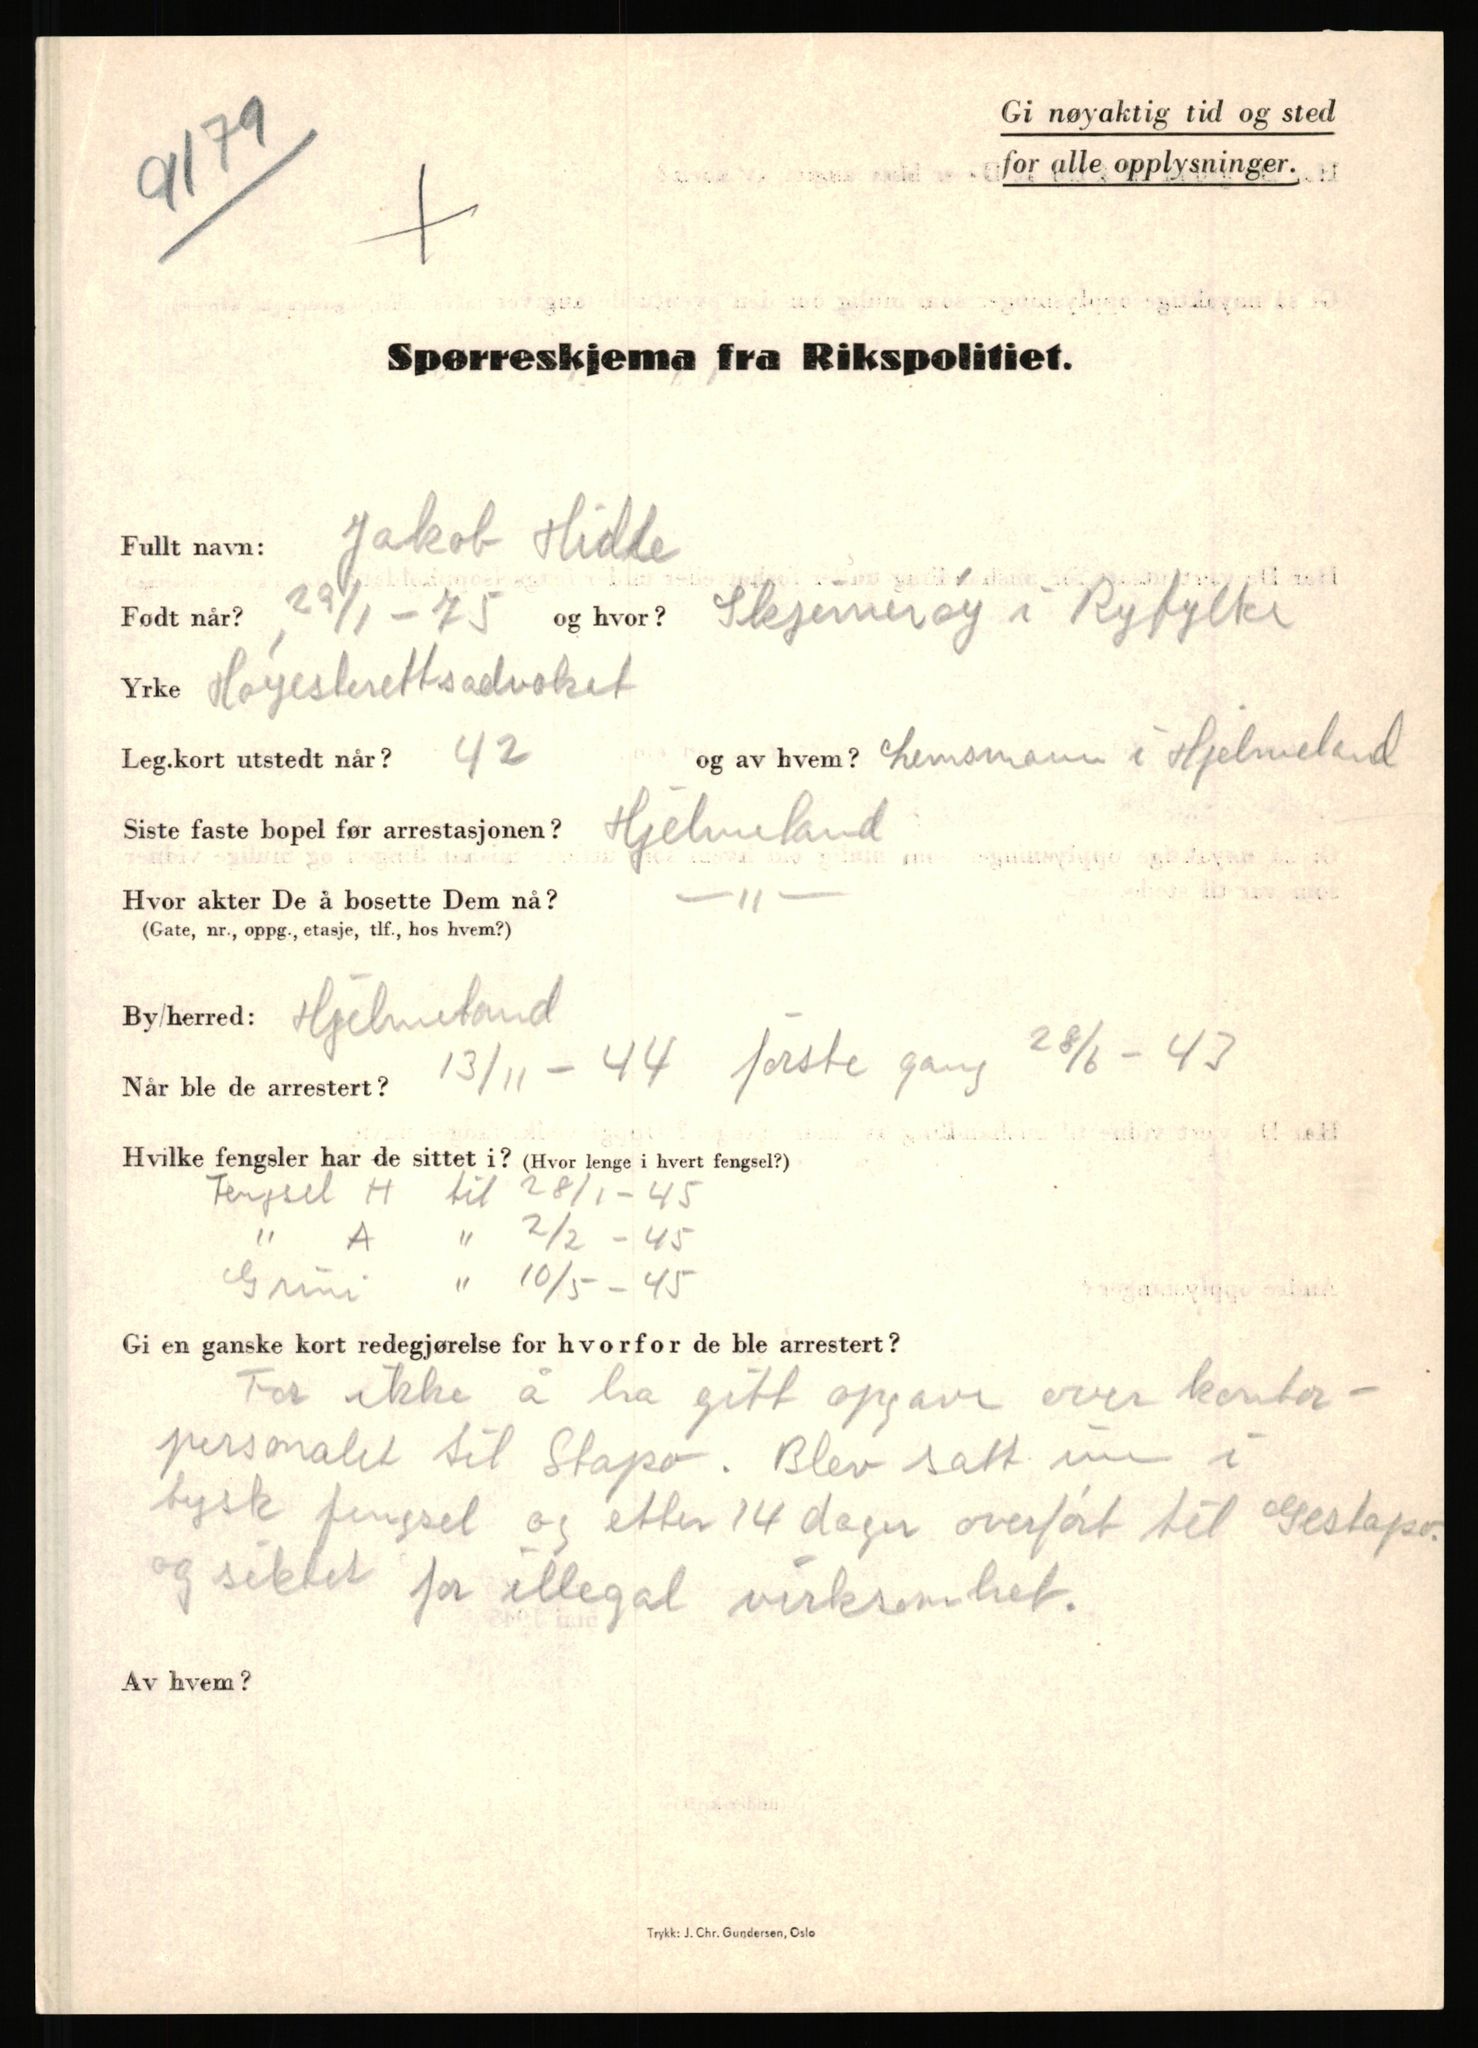 9179
Gi nøyaktig tid og sted
for alle opplysninger.
Spørreskjema fra Rikspolitiet.
Fullt navn: Jakob Hidle
Født når? 29/1 - 75 og hvor? Skjernerøy i Ryfylke
Yrke Høyesterettsadvokat
Leg.kort utstedt når? 42 og av hvem? Lensmann i Hjelmeland
Siste faste bopel før arrestasjonen? Hjelmeland
Hvor akter De å bosette Dem nå? — " —
(Gate, nr., oppg., etasje, tlf., hos hvem?)
By/herred: Hjelmeland
Når ble de arrestert? 13/11 - 44 første gang 28/6 - 43
Hvilke fengsler har de sittet i? (Hvor lenge i hvert fengsel?)
Fengsel H til 28/1 - 45
" A " 2/2 - 45
Grini " 10/5 - 45
Gi en ganske kort redegjørelse for hvorfor de ble arrestert?
For ikke å ha gitt opgave over kontor-
personalet til Stapo. Blev satt inn i
tysk fengsel og etter 14 dager overført til Gestapo.
og siktet for illegal virksomhet.
Av hvem?
Trykk: J. Chr. Gundersen, Oslo